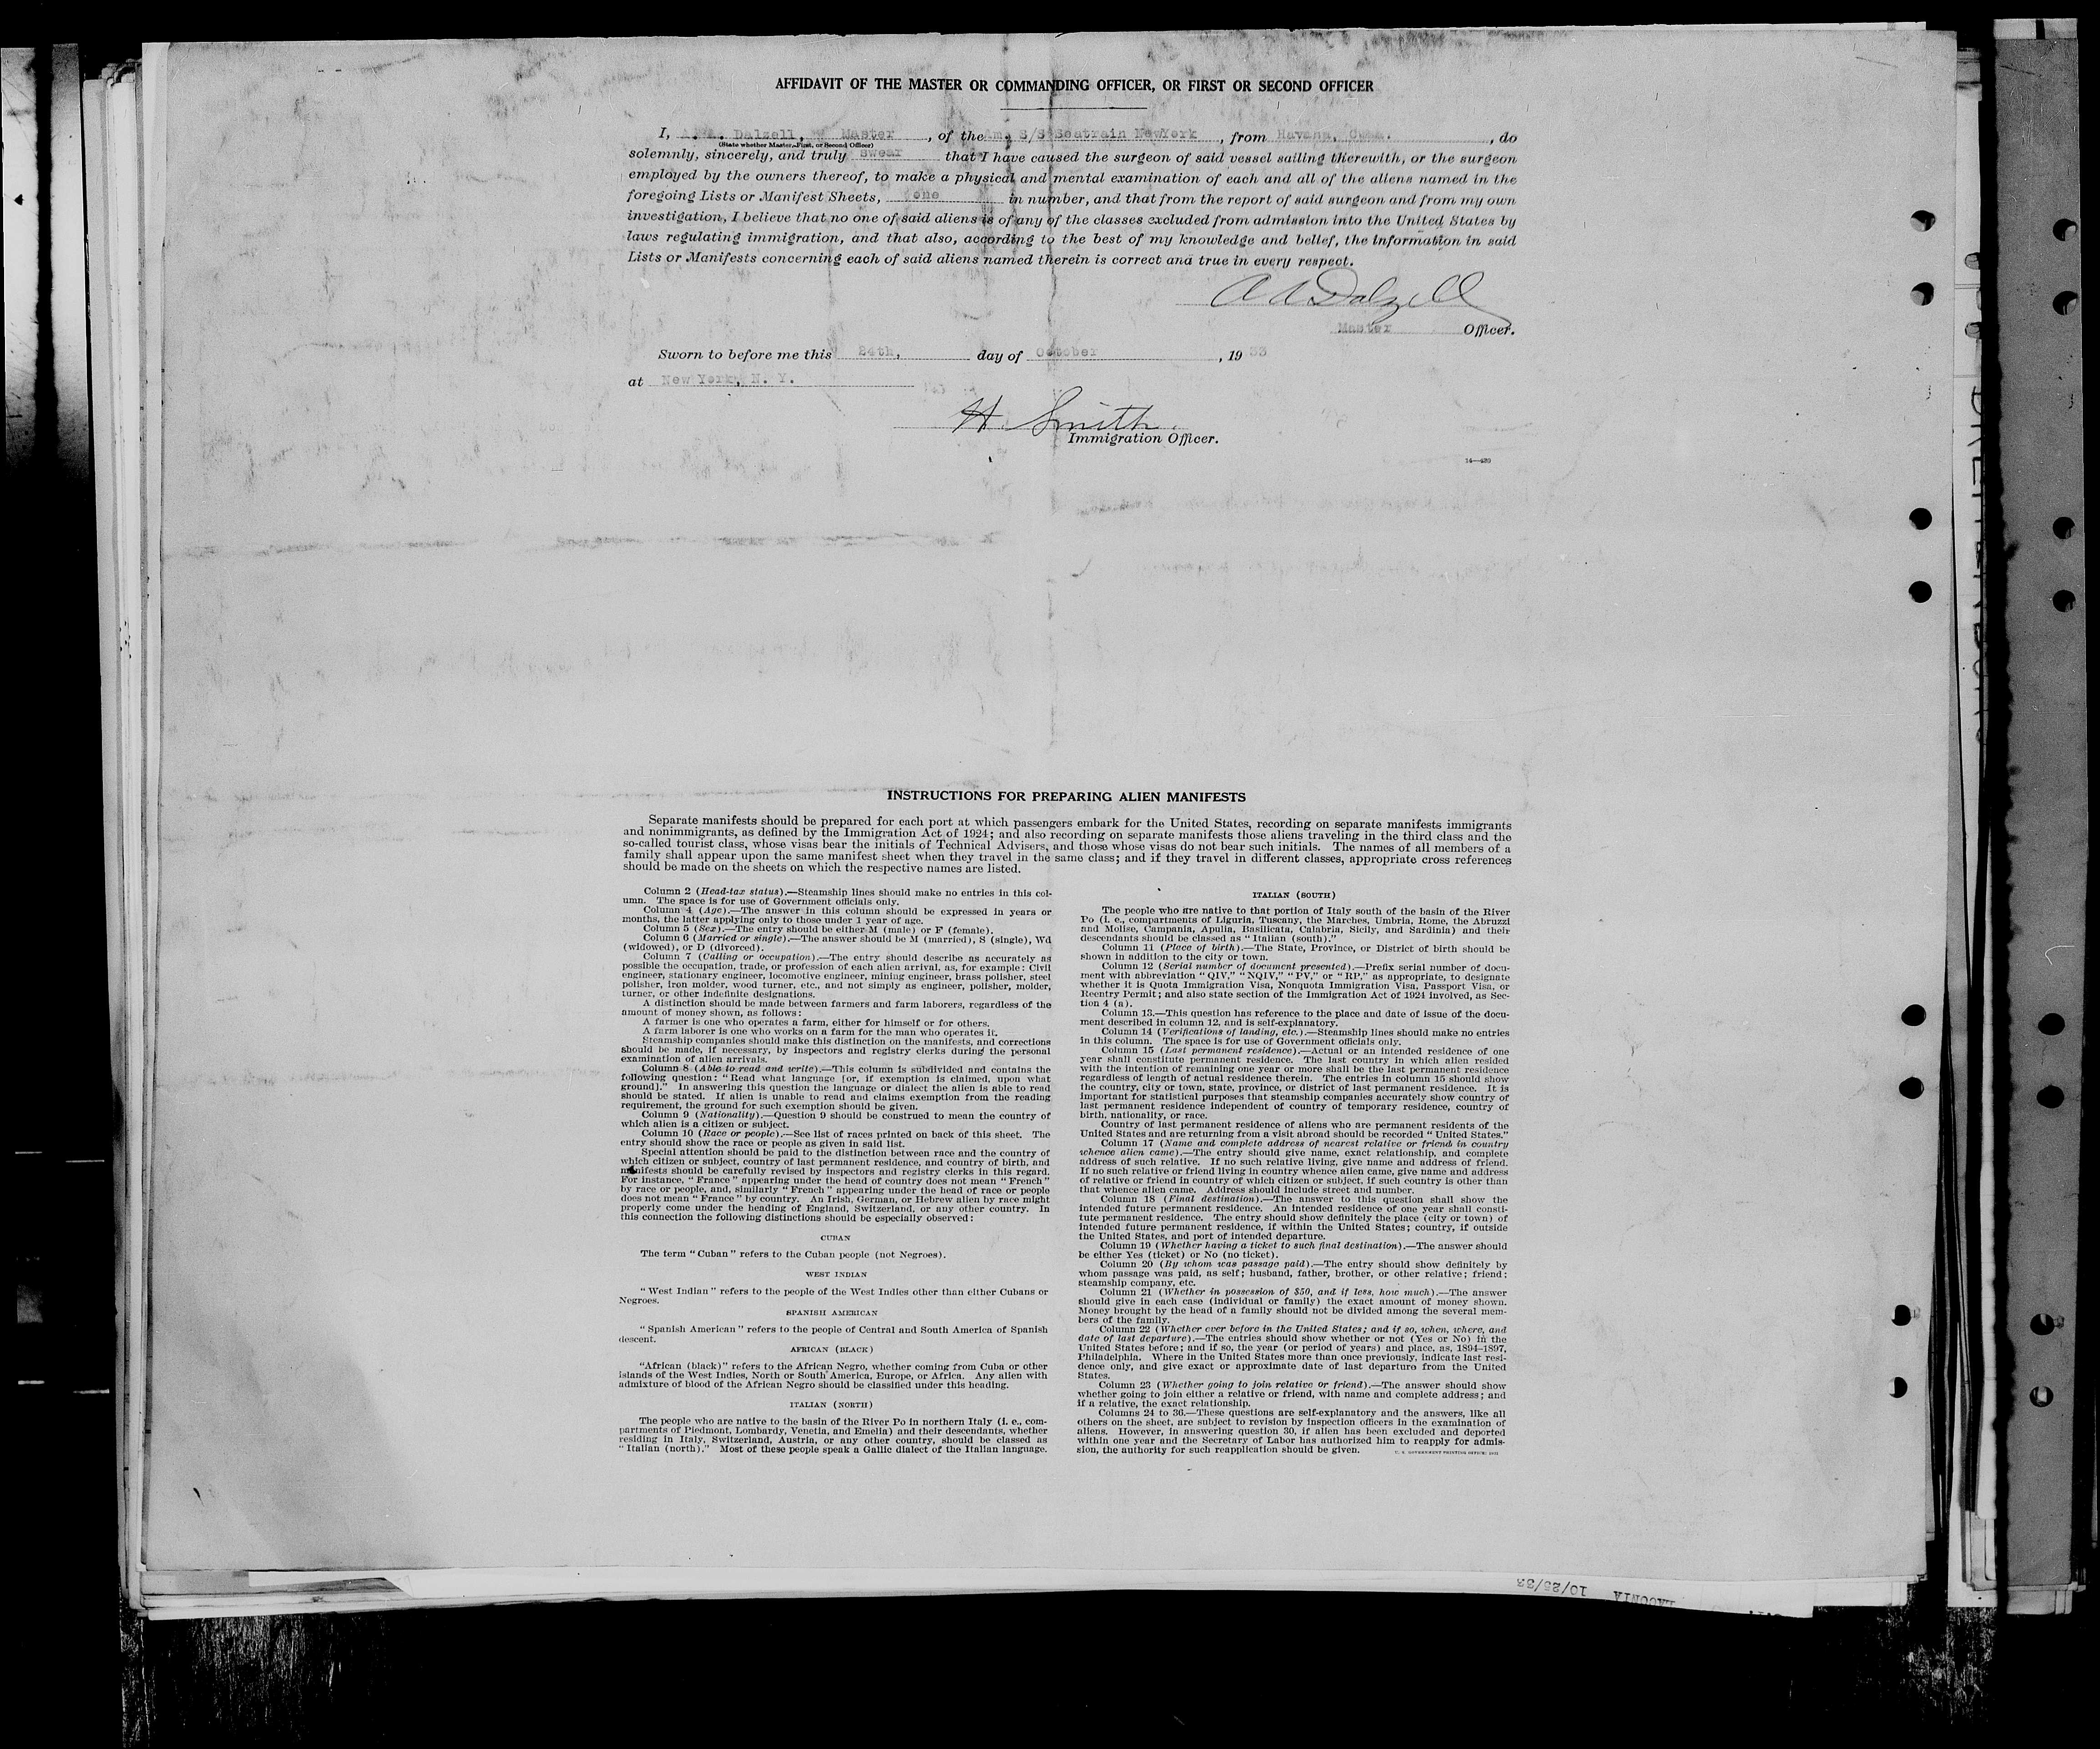 AFFIDAVIT OF THE MASTER OR COMMANDING OFFICER, OR FIRST OR SECOND OFFICER
I, A. A. Dalzell, Master, of the Am. S/S Seatrain NewYork, from Havana, Cuba., do
(State whether Master, First, or Second Officer)
solemnly, sincerely, and truly swear that I have caused the surgeon of said vessel sailing therewith, or the surgeon
employed by the owners thereof, to make a physical and mental examination of each and all of the aliens named in the
foregoing Lists or Manifest Sheets, one in number, and that from the report of said surgeon and from my own
investigation, I believe that no one of said aliens is of any of the classes excluded from admission into the United States by
laws regulating immigration, and that also, according to the best of my knowledge and belief, the information in said
Lists or Manifests concerning each of said aliens named therein is correct and true in every respect.
A A Dalzell
Master Officer.
Sworn to before me this 24th, day of October, 19 33
at New York, N. Y.
H. Smith.
Immigration Officer.
14—429
INSTRUCTIONS FOR PREPARING ALIEN MANIFESTS
Separate manifests should be prepared for each port at which passengers embark for the United States, recording on separate manifests immigrants
and nonimmigrants, as defined by the Immigration Act of 1924; and also recording on separate manifests those aliens traveling in the third class and the
so-called tourist class, whose visas bear the initials of Technical Advisers, and those whose visas do not bear such initials. The names of all members of a
family shall appear upon the same manifest sheet when they travel in the same class; and if they travel in different classes, appropriate cross references
should be made on the sheets on which the respective names are listed.
Column 2 (Head-tax status).—Steamship lines should make no entries in this col-
umn. The space is for use of Government officials only.
Column 4 (Age).—The answer in this column should be expressed in years or
months, the latter applying only to those under 1 year of age.
Column 5 (Sex).—The entry should be either M (male) or F (female).
Column 6 (Married or single).—The answer should be M (married), S (single), Wd
(widowed), or D (divorced).
Column 7 (Calling or occupation).—The entry should describe as accurately as
possible the occupation, trade, or profession of each alien arrival, as, for example: Civil
engineer, stationary engineer, locomotive engineer, mining engineer, brass polisher, steel
polisher, iron molder, wood turner, etc., and not simply as engineer, polisher, molder,
turner, or other indefinite designations.
A distinction should be made between farmers and farm laborers, regardless of the
amount of money shown, as follows:
A farmer is one who operates a farm, either for himself or for others.
A farm laborer is one who works on a farm for the man who operates it.
Steamship companies should make this distinction on the manifests, and corrections
should be made, if necessary, by inspectors and registry clerks during the personal
examination of alien arrivals.
Column 8 (Able to read and write).—This column is subdivided and contains the
following question: "Read what language [or, if exemption is claimed, upon what
ground]." In answering this question the language or dialect the alien is able to read
should be stated. If alien is unable to read and claims exemption from the reading
requirement, the ground for such exemption should be given.
Column 9 (Nationality).—Question 9 should be construed to mean the country of
which alien is a citizen or subject.
Column 10 (Race or people).—See list of races printed on back of this sheet. The
entry should show the race or people as given in said list.
Special attention should be paid to the distinction between race and the country of
which citizen or subject, country of last permanent residence, and country of birth, and
manifests should be carefully revised by inspectors and registry clerks in this regard.
For instance, "France" appearing under the head of country does not mean "French"
by race or people, and, similarly "French" appearing under the head of race or people
does not mean "France" by country. An Irish, German, or Hebrew alien by race might
properly come under the heading of England, Switzerland, or any other country. In
this connection the following distinctions should be especially observed:
CUBAN
The term "Cuban" refers to the Cuban people (not Negroes).
WEST INDIAN
"West Indian" refers to the people of the West Indies other than either Cubans or
Negroes.
SPANISH AMERICAN
"Spanish American" refers to the people of Central and South America of Spanish
descent.
AFRICAN (BLACK)
"African (black)" refers to the African Negro, whether coming from Cuba or other
islands of the West Indies, North or South America, Europe, or Africa. Any alien with
admixture of blood of the African Negro should be classified under this heading.
ITALIAN (NORTH)
The people who are native to the basin of the River Po in northern Italy (i. e., com-
partments of Piedmont, Lombardy, Venetia, and Emelia) and their descendants, whether
residing in Italy, Switzerland, Austria, or any other country, should be classed as
"Italian (north)." Most of these people speak a Gallic dialect of the Italian language.
ITALIAN (SOUTH)
The people who are native to that portion of Italy south of the basin of the River
Po (i. e., compartments of Liguria, Tuscany, the Marches, Umbria, Rome, the Abruzzi
and Molise, Campania, Apulia, Basilicata, Calabria, Sicily, and Sardinia) and their
descendants should be classed as "Italian (south)."
Column 11 (Place of birth).—The State, Province, or District of birth should be
shown in addition to the city or town.
Column 12 (Serial number of document presented).—Prefix serial number of docu-
ment with abbreviation "QIV," "NQIV," "PV," or "RP," as appropriate, to designate
whether it is Quota Immigration Visa, Nonquota Immigration Visa, Passport Visa, or
Reentry Permit; and also state section of the Immigration Act of 1924 involved, as Sec-
tion 4 (a).
Column 13.—This question has reference to the place and date of issue of the docu-
ment described in column 12, and is self-explanatory.
Column 14 (Verifications of landing, etc.).—Steamship lines should make no entries
in this column. The space is for use of Government officials only.
Column 15 (Last permanent residence).—Actual or an intended residence of one
year shall constitute permanent residence. The last country in which alien resided
with the intention of remaining one year or more shall be the last permanent residence
regardless of length of actual residence therein. The entries in column 15 should show
the country, city or town, state, province, or district of last permanent residence. It is
important for statistical purposes that steamship companies accurately show country of
last permanent residence independent of country of temporary residence, country of
birth, nationality, or race.
Country of last permanent residence of aliens who are permanent residents of the
United States and are returning from a visit abroad should be recorded "United States."
Column 17 (Name and complete address of nearest relative or friend in country
whence alien came).—The entry should give name, exact relationship, and complete
address of such relative. If no such relative living, give name and address of friend.
If no such relative or friend living in country whence alien came, give name and address
of relative or friend in country of which citizen or subject, if such country is other than
that whence alien came. Address should include street and number.
Column 18 (Final destination).—The answer to this question shall show the
intended future permanent residence. An intended residence of one year shall consti-
tute permanent residence. The entry should show definitely the place (city or town) of
intended future permanent residence, if within the United States; country, if outside
the United States, and port of intended departure.
Column 19 (Whether having a ticket to such final destination).—The answer should
be either Yes (ticket) or No (no ticket).
Column 20 (By whom was passage paid).—The entry should show definitely by
whom passage was paid, as self; husband, father, brother, or other relative; friend;
steamship company, etc.
Column 21 (Whether in possession of $50, and if less, how much).—The answer
should give in each case (individual or family) the exact amount of money shown.
Money brought by the head of a family should not be divided among the several mem-
bers of the family.
Column 22 (Whether ever before in the United States; and if so, when, where, and
date of last departure).—The entries should show whether or not (Yes or No) in the
United States before; and if so, the year (or period of years) and place, as, 1894-1897,
Philadelphia. Where in the United States more than once previously, indicate last resi-
dence only, and give exact or approximate date of last departure from the United
States.
Column 23 (Whether going to join relative or friend).—The answer should show
whether going to join either a relative or friend, with name and complete address; and
if a relative, the exact relationship.
Columns 24 to 36.—These questions are self-explanatory and the answers, like all
others on the sheet, are subject to revision by inspection officers in the examination of
aliens. However, in answering question 30, if alien has been excluded and deported
within one year and the Secretary of Labor has authorized him to reapply for admis-
sion, the authority for such reapplication should be given.
U. S. GOVERNMENT PRINTING OFFICE
LACONIA 10/25/33